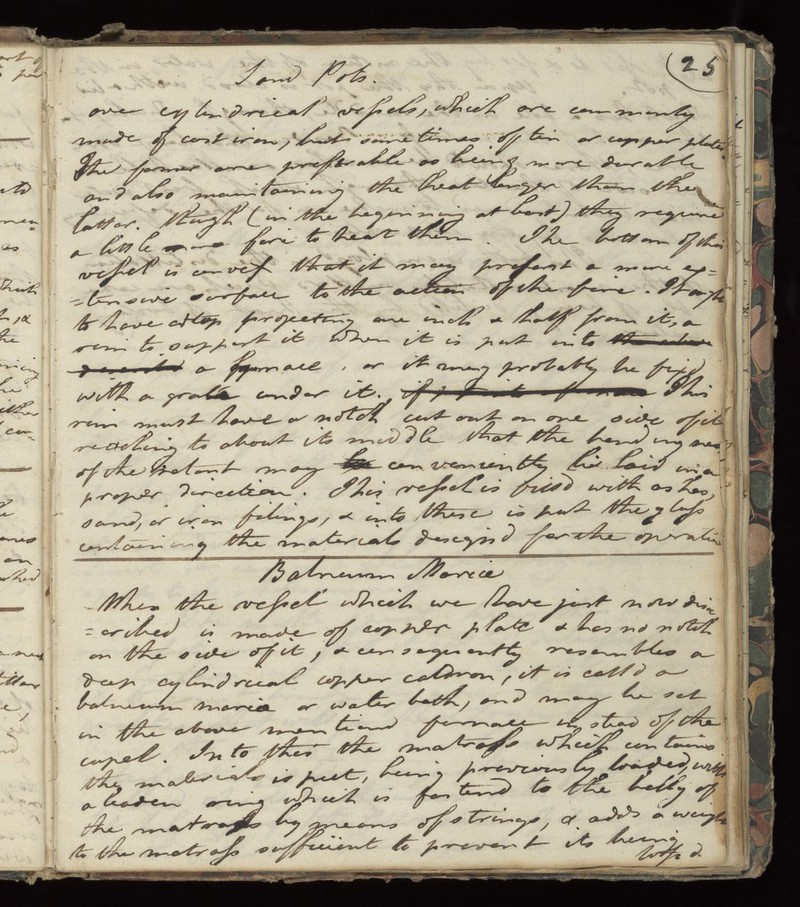 25
Sand Pots.
are cylindrical vessels, which are commonly
made of cast iron, but sometimes of tin or copper plate.
The former are preferable as being more durable
and also maintaining the heat longer than the
latter. Though (in the beginning at least) they require
a little more fire to heat them. The bottom of this
vessel is convex that it may present a more ex=
=tensive surface to the action of the fire. It ought
to have a step projecting one inch & half from it, a
rim to support it when it is put into
a furnace, or it may probably be fixd
with a grate under it. This
rim must have a notch cut out on one side of it
reaching to about its middle that the bending neck
of the retort may be conveniently laid in a
proper direction. This vessel is filld with ashes,
sand, or iron filings, & into these is put the glass
containing the materials designd for the operation
Balneum Mariæ
When the vessel which we have just now des
=cribed is made of copper plate & has no notch
on the side of it, & consequently resembles a
deep cylindrical copper caldron, it is calld a
balneum mariæ or water bath, and may be set
in the above mentiond furnace instead of the
cupel. Into this the matrass which contains
the materials is put, being previously loaded with
a leaden ring which is fastend to the belly of
the matrass by means of strings, & adds a weight
to the matrass sufficient to prevent its being